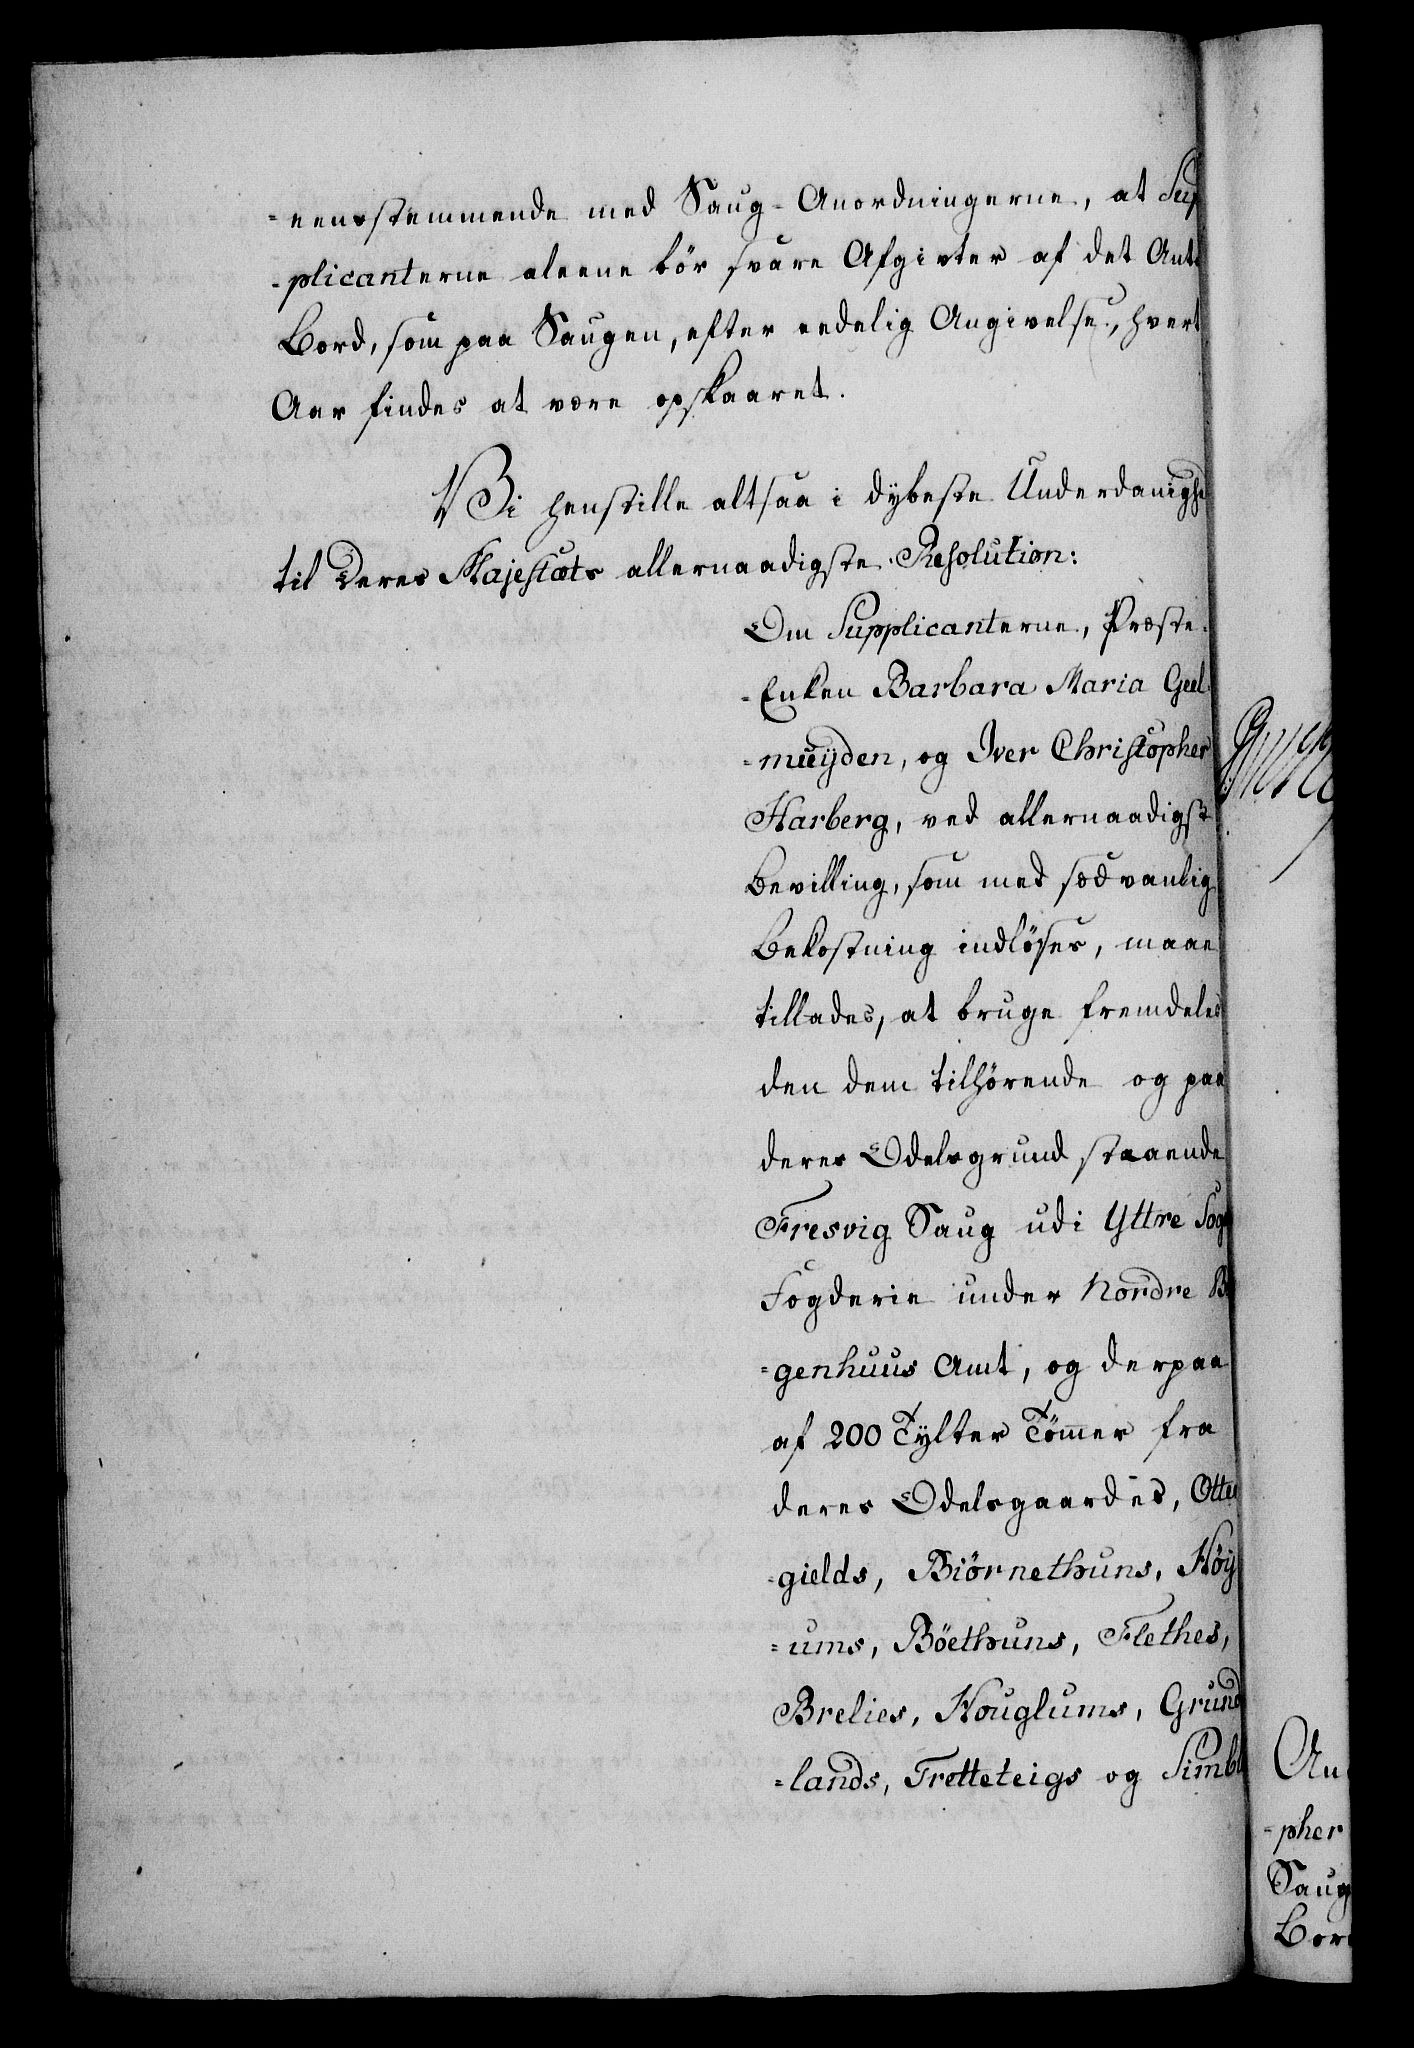 =eensstemmende med Saug-Anordningerne, at Sup
=plicanterne aleene bör svare Afgivter af det Antal
Bord, som paa Saugen, efter eedelig Angivelse, hvert
Aar findes at være opskaaret.
Vi henstille altsaa i dybeste Underdanighed
til Deres Majestæts allernaadigste Resolution:
Om Supplicanterne, Præste-
=Enken Barbara Maria Geel-
=muyden, og Iver Christopher
Harberg, ved allernaadigst
Bevilling, som med sædvanlig
Bekostning indlöses, maae
tillades, at bruge fremdeles
den dem tilhörende og paa
deres Odelsgrund staaende
Fresvig Saug udi Yttre Sogns
Fogderie under Nordre Ber
=genhuus Amt, og derpaa
af 200 Tylter Tömmer fra
deres Odelsgaardes, Otte
=gields, Biörnethuns, Höy
=ums, Böethuns, Flethes,
Brelies, Houglums, Grund
=lands, Tretteteigs og Simbl
An
=pher
Saug
Bord